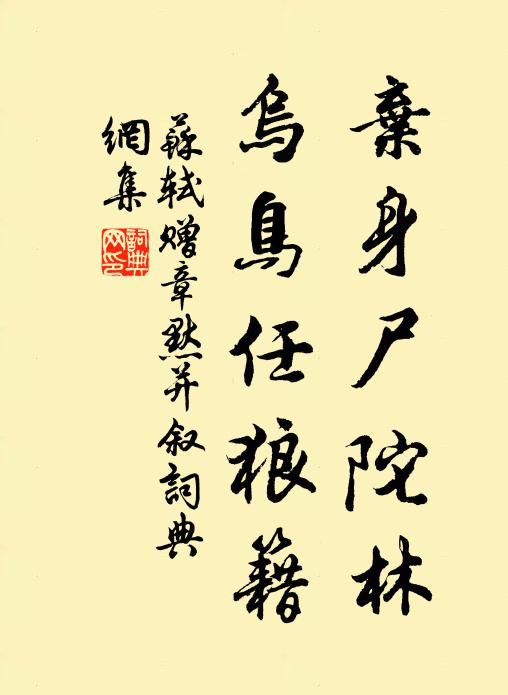 棄身尸陀林
烏鳥任狼籍
蘇軾贈章默并叙詞典
網集
詞典網印